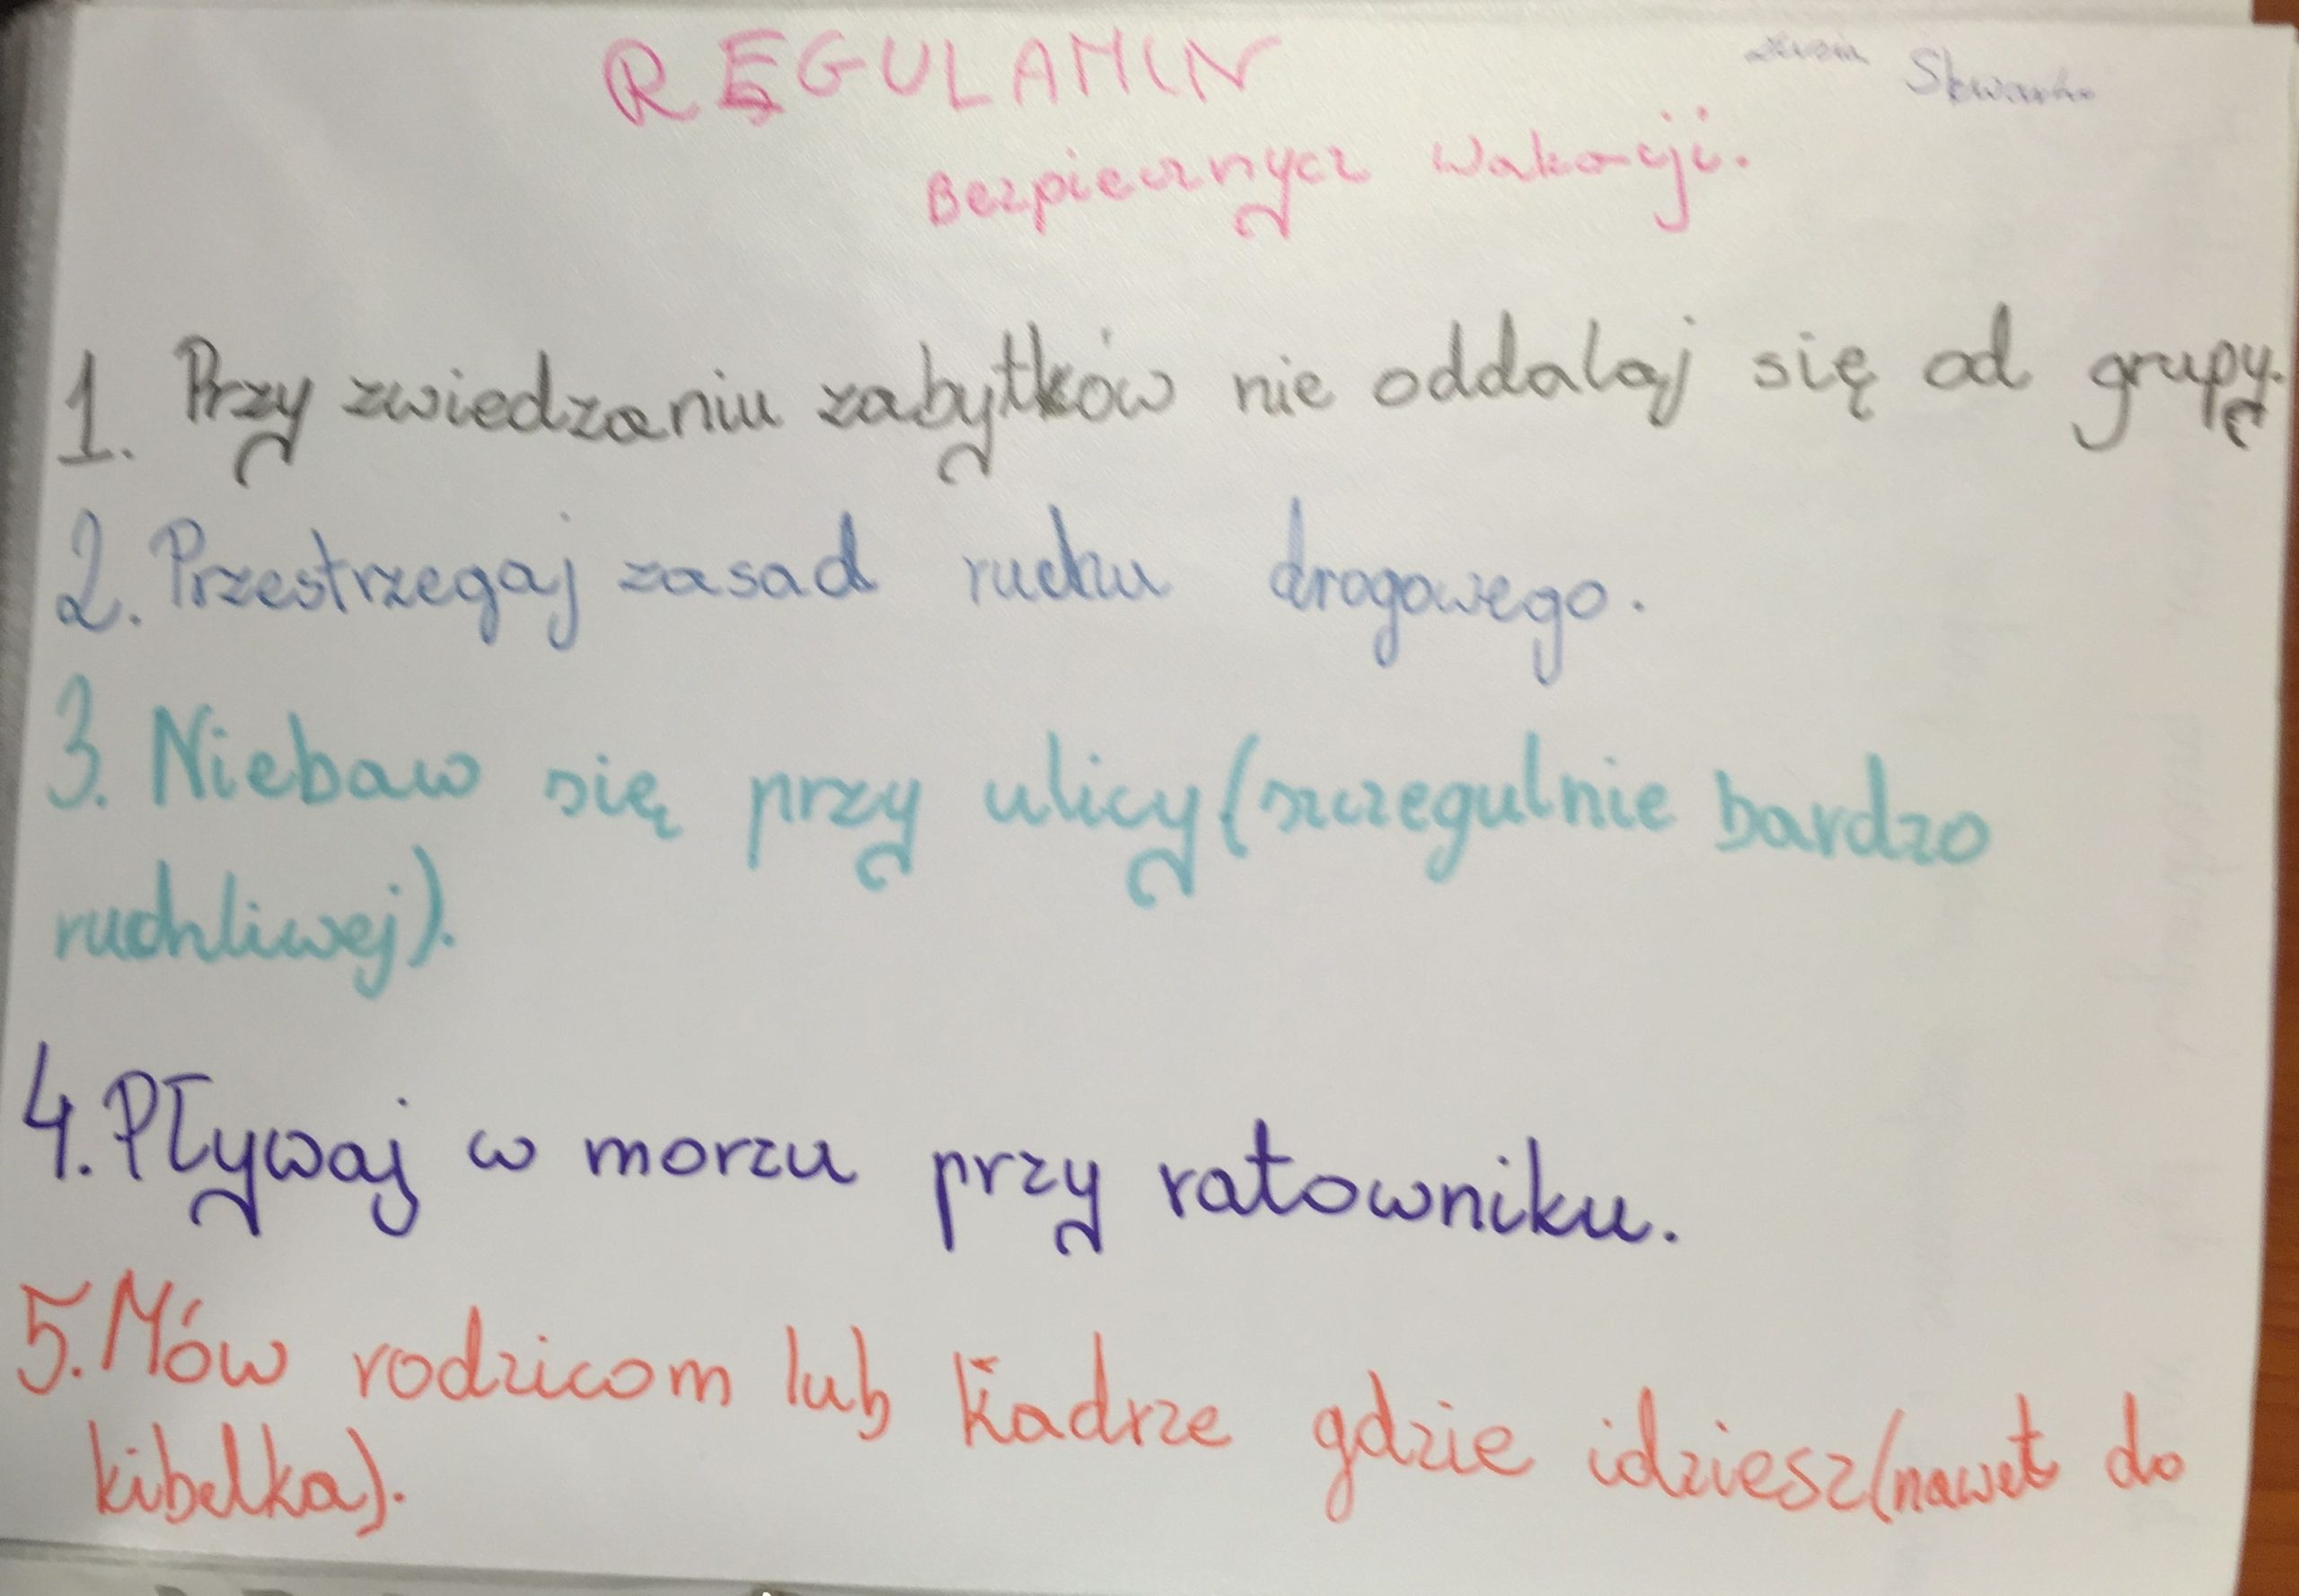 REGULAMIN
Bezpiecznycz Wakacji.
1. Przy zwiedzaniu zabytków nie oddalaj się od grupy.
2. Przestrzegaj zasad ruchu drogowego.
3. Niebaw się przy ulicy (szczegulnie bardzo
ruchliwej).
4. Pływaj w morzu przy ratowniku.
5. Mów rodzicom lub kadrze gdzie idziesz (nawet do
kibelka).